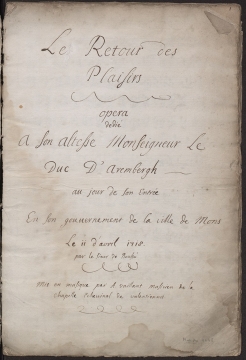 Le Retour des
Plaisirs
opera
dédié
A Son altesse Monseigneur Le
Duc D'Arembergh
au jour de son Entrée
En son gouvernement de la ville de Mons
Le 11 d'avril 1718
par le Sieur de
Mis en musique par A vaillant musicien de la
chapelle de valentienne